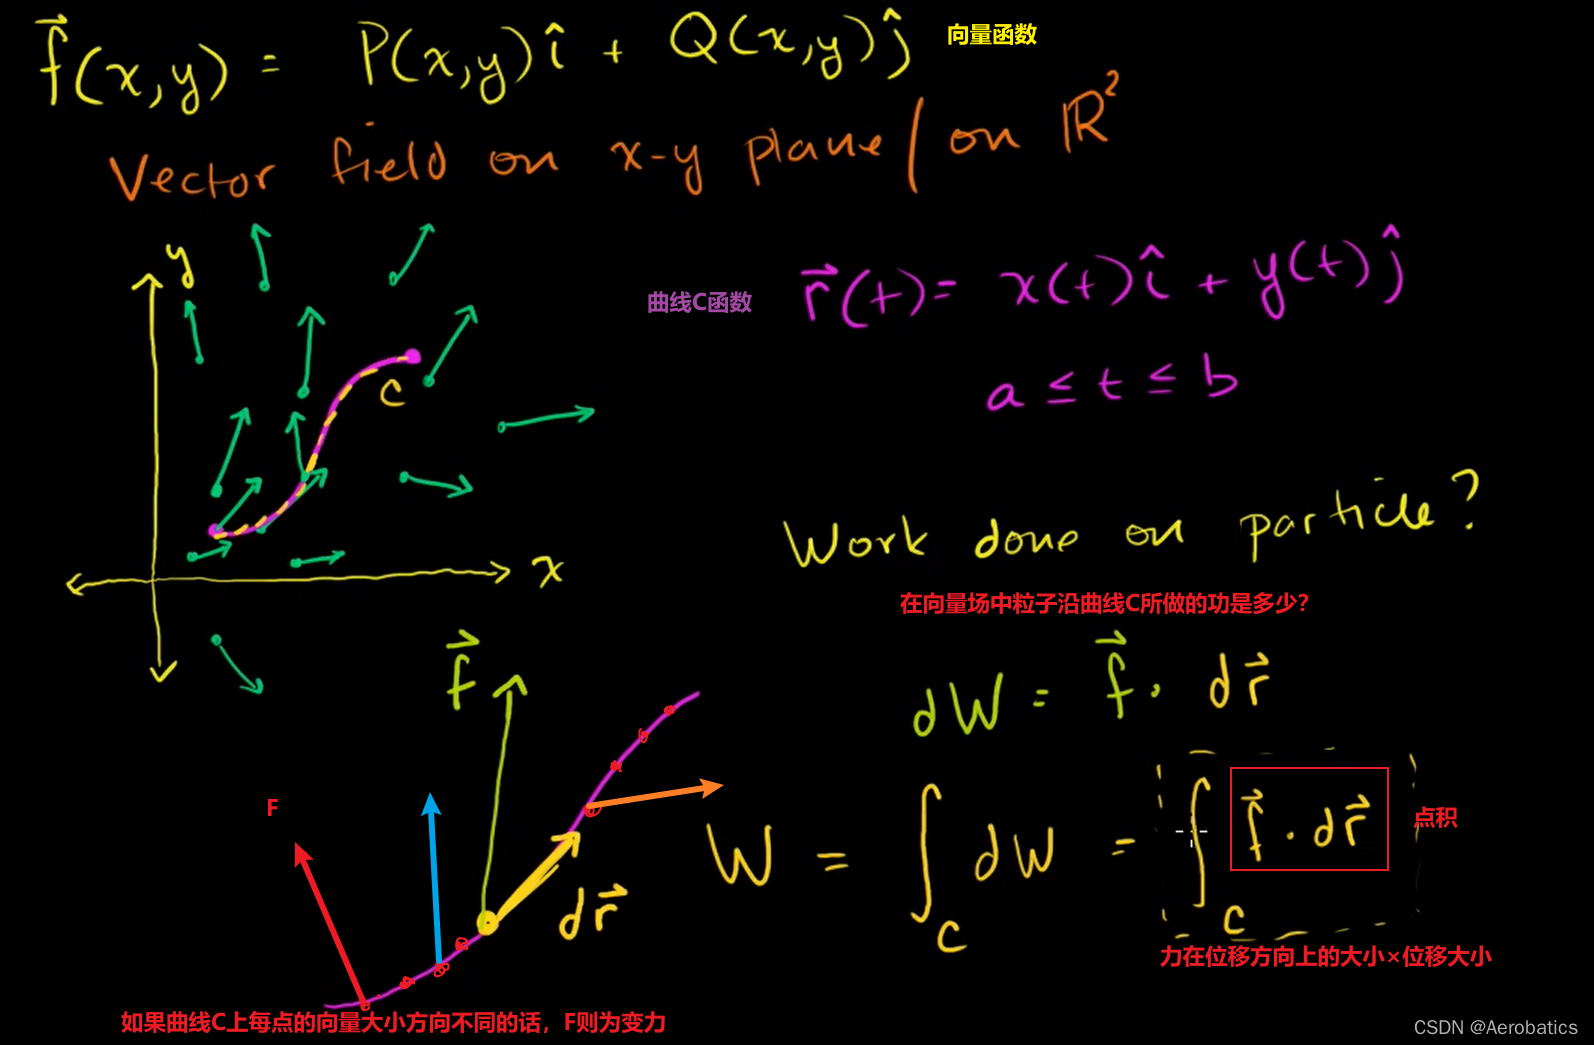 f⃗(x,y) = P(x,y)î + Q(x,y)ĵ 向量函数
Vector field on x-y plane / on ℝ²
y
曲线C函数 r⃗(t) = x(t)î + y(t)ĵ
a ≤ t ≤ b
C
x
Work done on particle?
在向量场中粒子沿曲线C所做的功是多少?
f⃗
dW = f⃗ · dr⃗
F
dr⃗
W = ∫_C dW = ∫_C f⃗ · dr⃗ 点积
力在位移方向上的大小×位移大小
如果曲线C上每点的向量大小方向不同的话，F则为变力
CSDN @Aerobatics